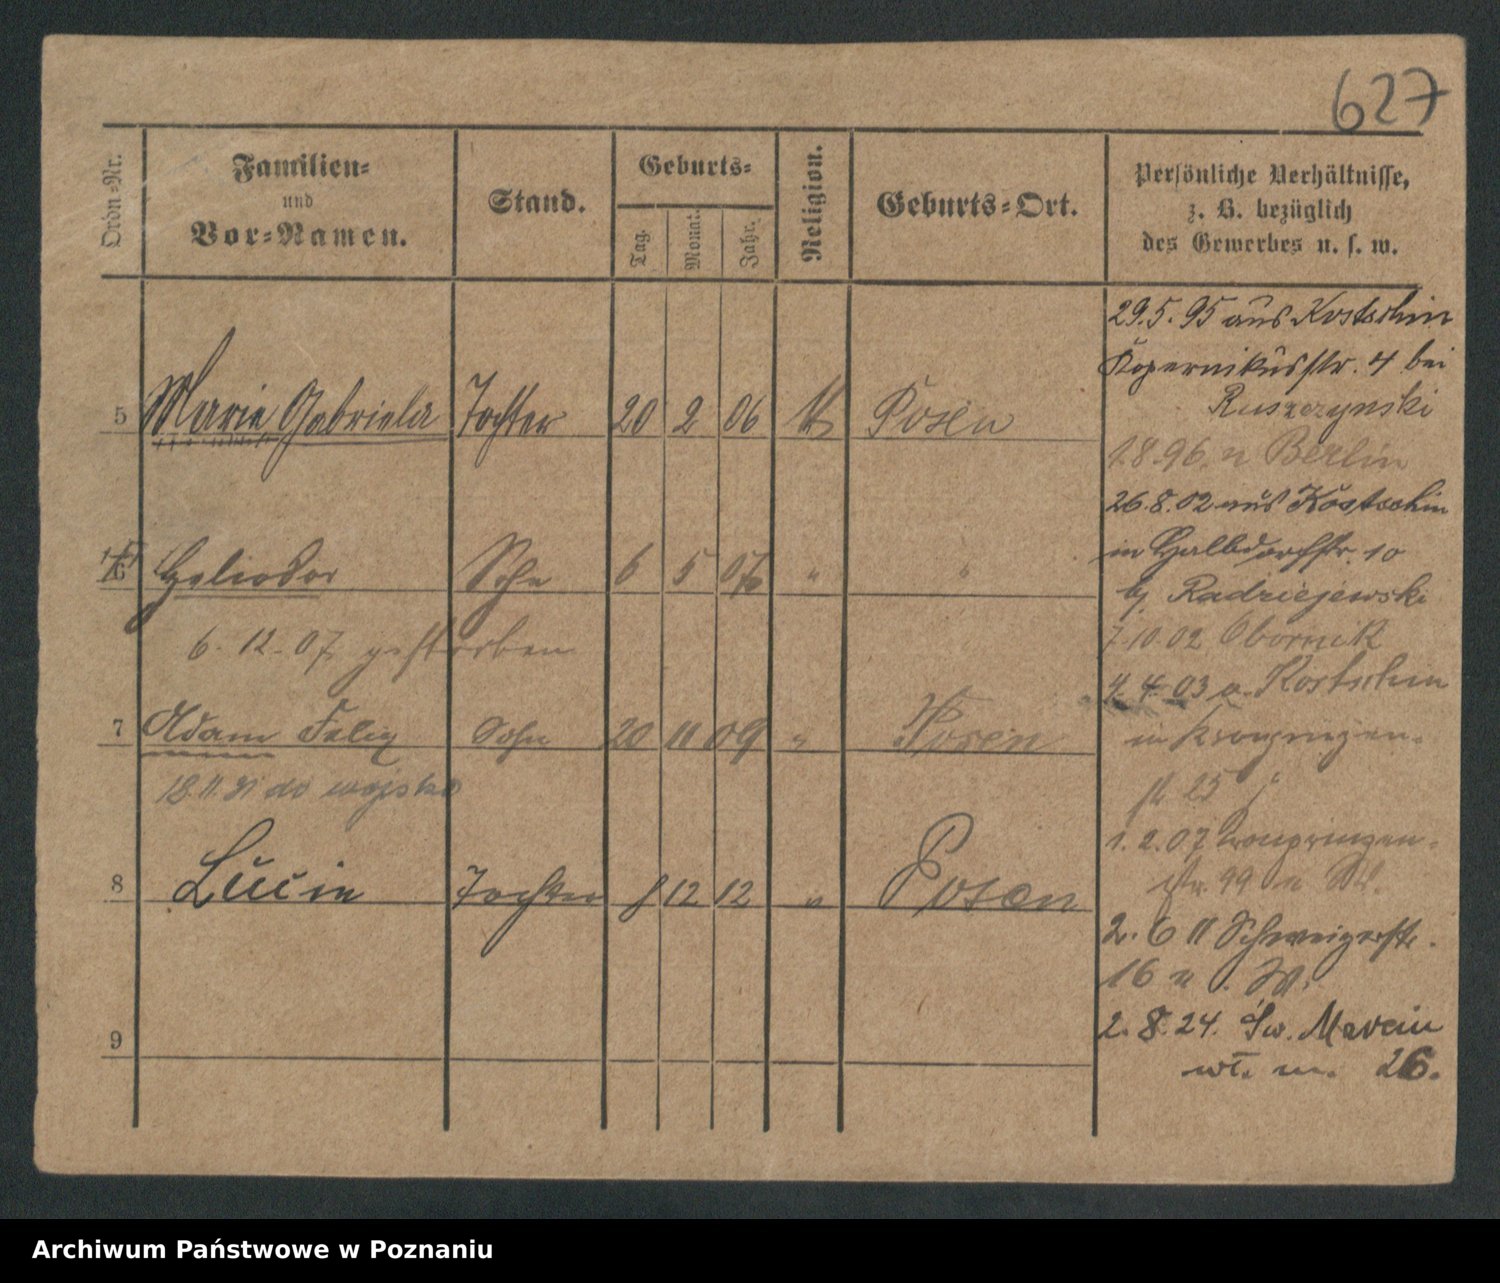 627
Ordn.-Nr.
Familien-
und
Vor-Namen.
Stand.
Geburts-
Tag.
Monat.
Jahr.
Religion.
Geburts-Ort.
Persönliche Verhältnisse,
z. B. bezüglich
des Gewerbes u. s. w.
5 Marie Gabriela Tochter 20 2 06 Posen
Heliodor Sohn 6 5 07 " "
6. 12. 07 gestorben
7 Adam Felix Sohn 20 11 09 " Posen
18.11.31 do wojska
8 Lucie Tochter 8 12 12 " Posen
9
29.5.95 aus Kostschin
Kopernikusstr. 4 bei
Ruszczynski
1.8.96. n Berlin
26.8.02 aus Kostschin
in Halbdorfstr. 10
bj. Radziejewski
7.10.02 Obornik
4.4.03 a. Kostschin
in Kronprinzen-
str 25
1.2.07 Kronprinzen-
str. 99 n W.
2.6 11 Schweizerstr.
16 n. W.
2.8.24. Św. Marcin
wł. m. 26.
Archiwum Państwowe w Poznaniu